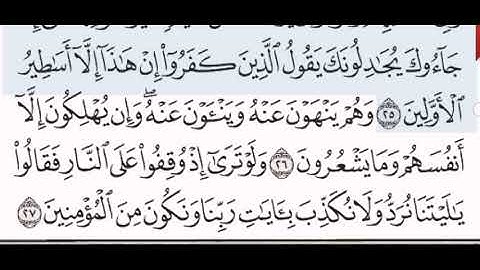 جَآءُوكَ يُجَٰدِلُونَكَ يَقُولُ ٱلَّذِينَ كَفَرُوٓا۟ إِنْ هَٰذَآ إِلَّآ أَسَٰطِيرُ
ٱلْأَوَّلِينَ ٢٥ وَهُمْ يَنْهَوْنَ عَنْهُ وَيَنْـَٔوْنَ عَنْهُ ۖ وَإِن يُهْلِكُونَ إِلَّآ
أَنفُسَهُمْ وَمَا يَشْعُرُونَ ٢٦ وَلَوْ تَرَىٰٓ إِذْ وُقِفُوا۟ عَلَى ٱلنَّارِ فَقَالُوا۟
يَٰلَيْتَنَا نُرَدُّ وَلَا نُكَذِّبَ بِـَٔايَٰتِ رَبِّنَا وَنَكُونَ مِنَ ٱلْمُؤْمِنِينَ ٢٧